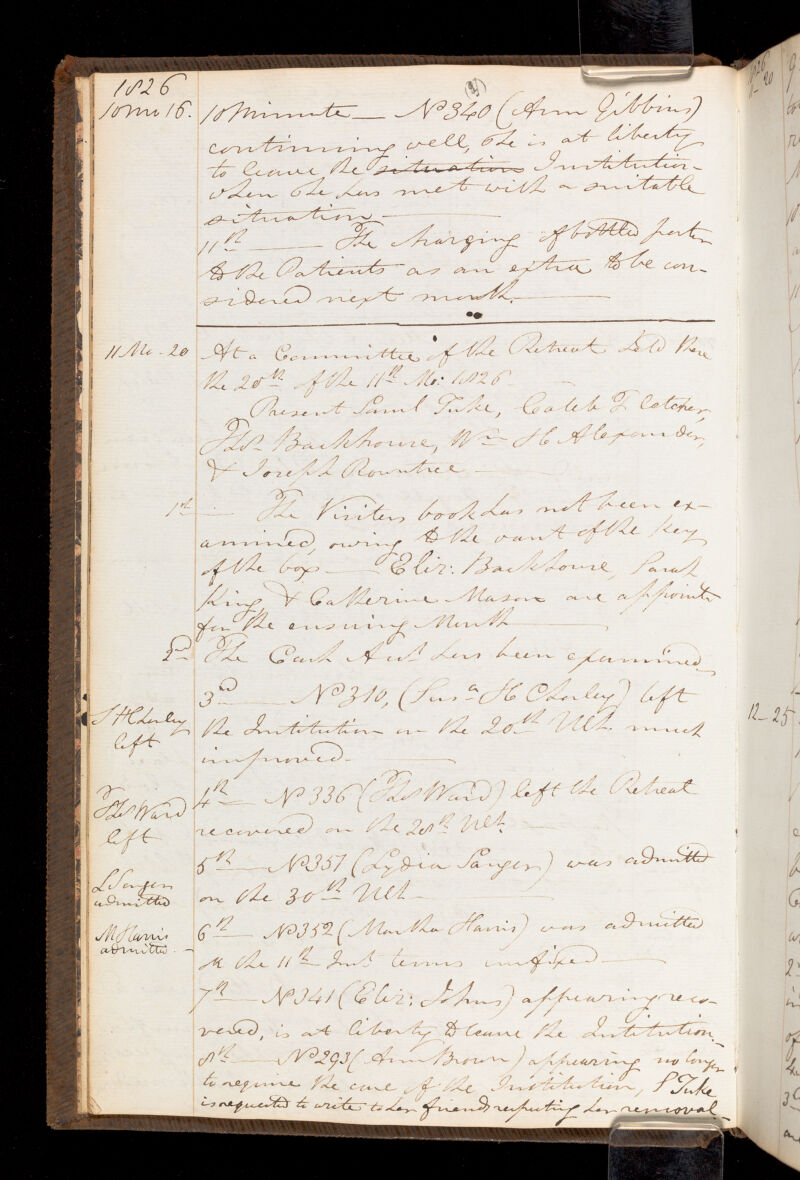 1826
10 mo 16.
10 Minute — No 340 (Ann Gibbins)
continuing well, she is at liberty
to leave the situation Institution
when she has met with a suitable
situation —
11th — The charging of bottled porter
to the Patients as an extra to be con-
sidered next month. —
11 Mo - 20
At a Committee of the Retreat held there
the 20th of the 11th Mo: 1826
Present Saml Tuke, Caleb Fletcher,
Thos Backhouse, Wm H Alexander,
& Joseph Rowntree —
1st — The Visiters book has not been ex-
amined, owing to the want of the key
of the box — Eliz: Backhouse, Sarah
King, & Catherine Mason are appointd
for the ensuing Month —
2nd The Cash Act has been examined
3rd — No 310, (Susa H Chorley) left
the Institution on the 20th Ult. much
improved —
S H Chorley
left
4th — No 336 (Thos Ward) left the Retreat
recovered on the 28th Ult. —
Thos Ward
left
5th — No 357 (Lydia Sanger) was admitted
on the 30th Ult —
L Sanger
admitted
6th — No 352 (Martha Harris) was admitted
on the 11th Inst terms unfixed —
M Harris
admitted —
7th — No 341 (Eliz: Johns) appearing reco-
vered, is at liberty to leave the Institution —
8th — No 293 (Ann Brown) appearing no longer
to require the care of the Institution, S Tuke
is requested to write to her friends respecting her removal —
12 - 25